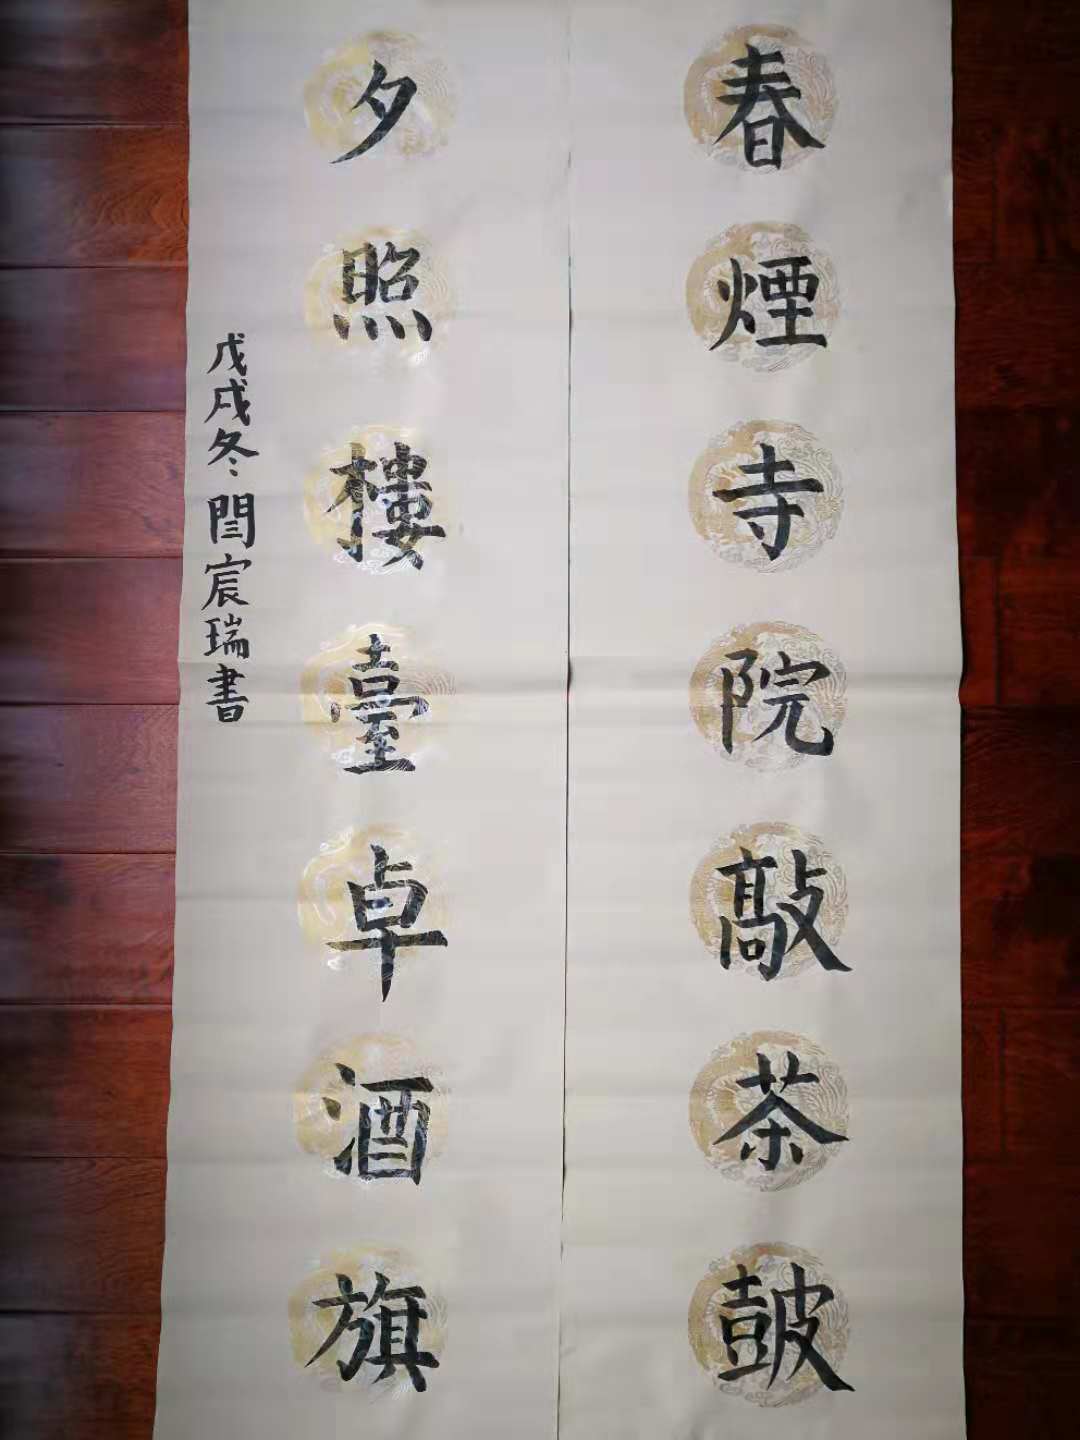 春煙寺院敲茶皷
夕照樓臺卓酒旗
戊戌冬閆宸瑞書